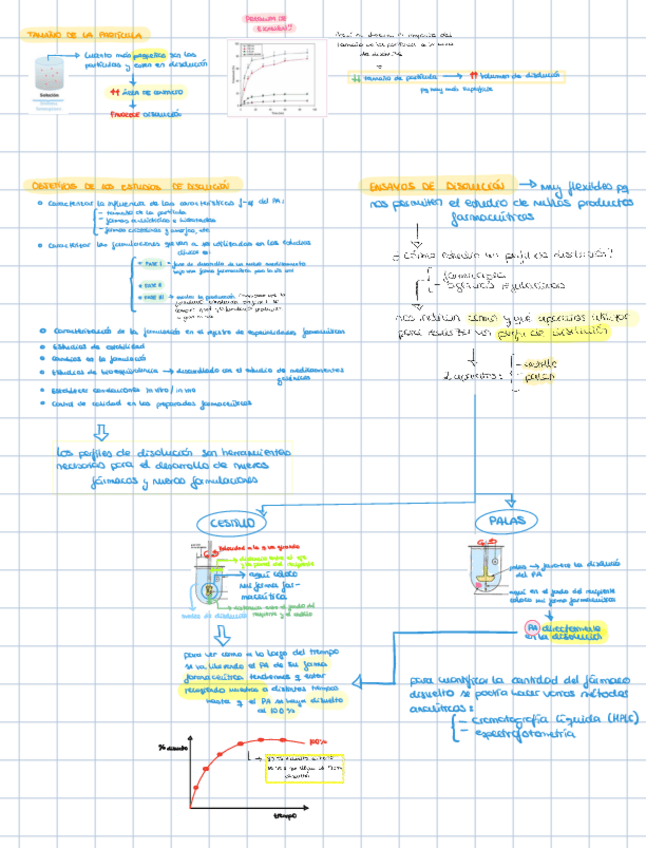 TAMAÑO DE LA PARTÍCULA
Cuanto más pequeñas son las
partículas y estén en disolución
↑↑ ÁREA DE CONTACTO
FAVORECE DISOLUCIÓN
PREGUNTA DE
EXAMEN!!
↓↓ tamaño de partícula → ↑↑ volumen de disolución
pq hay más superficie
OBJETIVOS DE LOS ESTUDIOS DE DISOLUCIÓN
Caracterizar la influencia de las características f-q del PA:
- tamaño de la partícula
- formas cristalinas y amorfas, etc
Caracterizar las formulaciones galénicas a ser utilizadas en los estudios
clínicos en:
FASE I
FASE II
FASE III
Caracterización de la formulación en el registro de especialidades farmacéuticas
Estudios de estabilidad
Cambios en la formulación
Estudios de bioequivalencia → desarrollado con el estudio de medicamentos
genéricos
Establecer correlaciones in vitro / in vivo
Control de calidad en los preparados farmacéuticos
Los perfiles de disolución son herramientas
necesarias para el desarrollo de nuevos
fármacos y nuevas formulaciones
ENSAYOS DE DISOLUCIÓN → Muy flexibles pq
nos permiten el estudio de muchos productos
farmacéuticos
¿Cómo realizar un perfil de disolución?
- farmacopea
- agencias reguladoras
nos indican cómo y qué aparatos utilizar
para realizar un perfil de disolución
2 aparatos:
- cestillo
- palas
CESTILLO
PALAS
Velocidad a la q va girando
distancia entre el eje
y la pared del recipiente
aquí coloco
mi forma far-
macéutica
distancia entre el fondo del
recipiente y el cestillo
medio de disolución
palas → favorece la disolución
del PA
aquí en el fondo del recipiente
coloco mi forma farmacéutica
PA directamente
en la disolución
para ver cómo a lo largo del tiempo
se va liberando el PA de su forma
farmacéutica tendremos q estar
recogiendo muestras a distintos tiempos
hasta q el PA se haya disuelto
al 100%
para cuantificar la cantidad del fármaco
disuelto se podría hacer varios métodos
analíticos:
- cromatografía líquida (HPLC)
- espectrofotometría
% disuelto
100%
tiempo